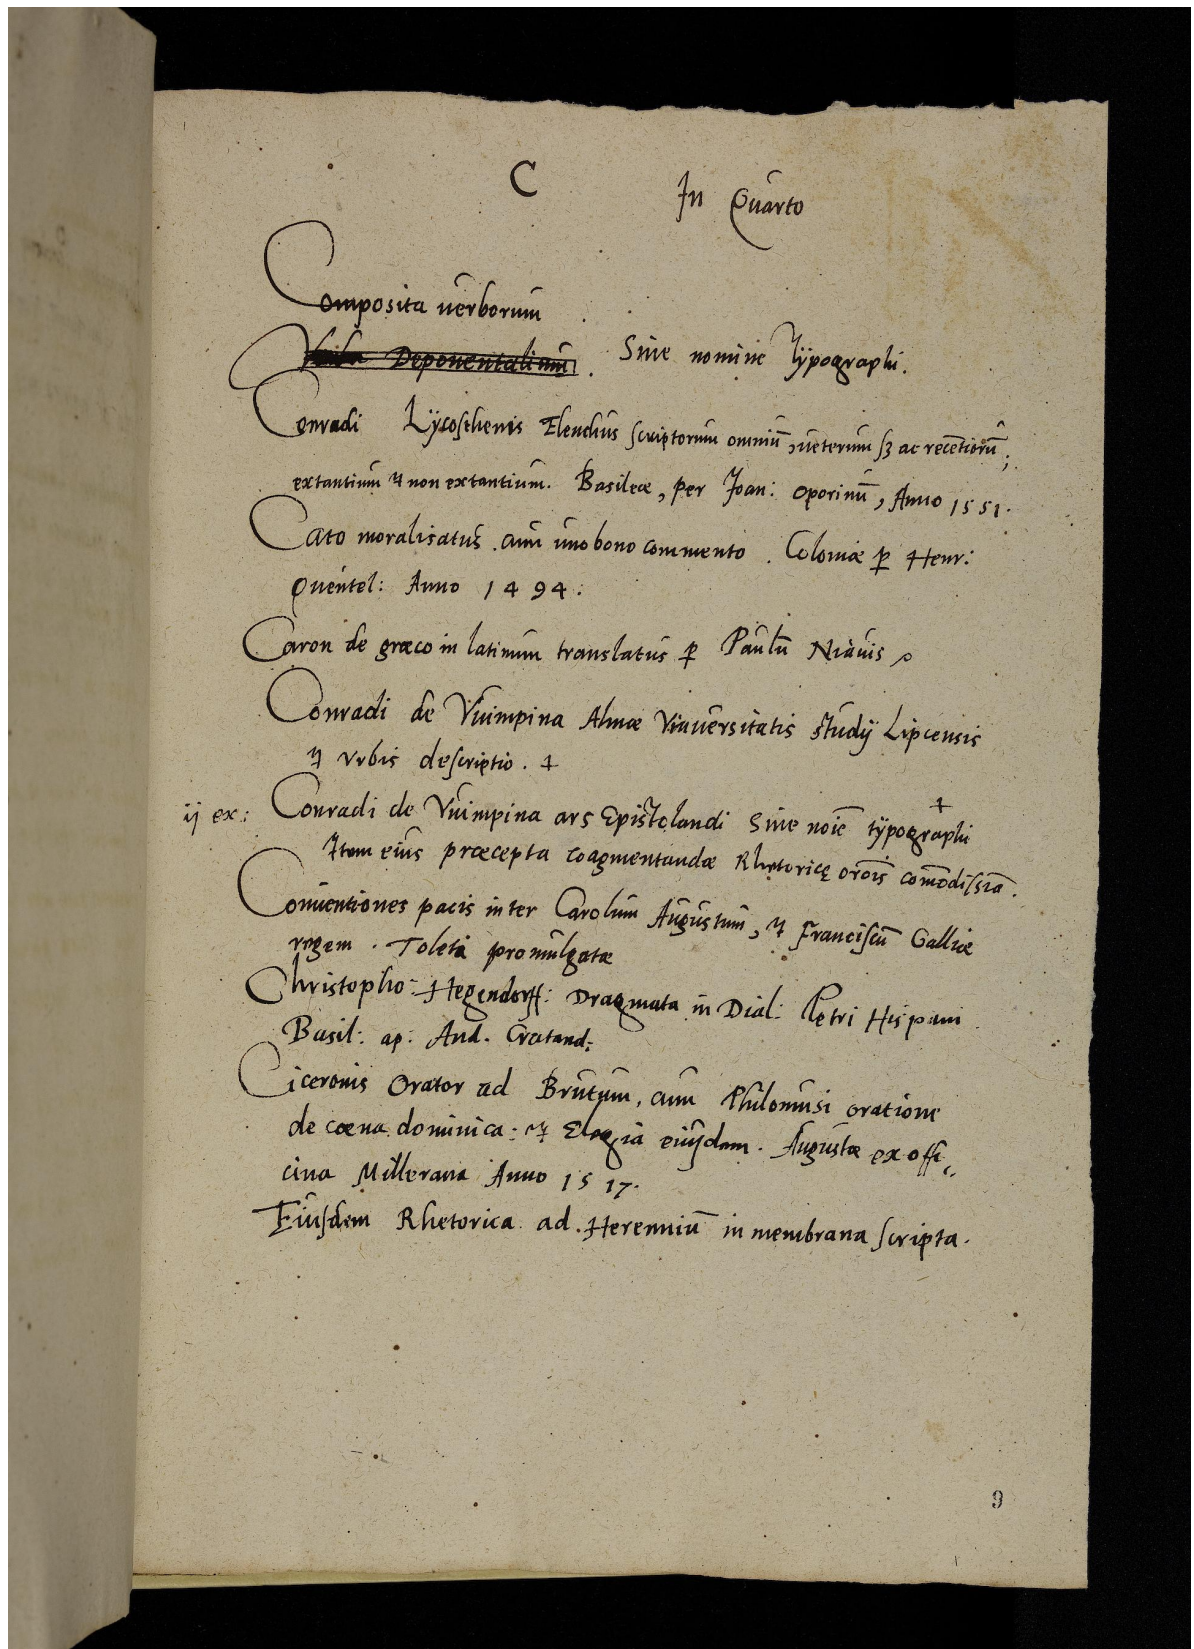 C In Quarto
Composita uerborum
Verba Deponentalium. Sine nomine Typographi.
Conradi Lycosthenis Elenchus scriptorum omniū, ueterum sꝫ ac recentiorū,
extantium et non extantium. Basileæ, per Joan: Oporinū, Anno 1551.
Cato moralisatus cum uno bono commento. Coloniæ ꝑ Henr:
Quentel: Anno 1494.
Caron de græco in latinum translatus ꝑ Paulū Niauis
Conradi de Vuimpina Almæ Vniuersitatis studij Lipcensis
et vrbis descriptio. +
ij ex: Conradi de Vuimpina ars Epistolandi Sine noīe typographi +
Item eius præcepta coagmentandæ Rhetoricę orōis comōdissīa.
Conuentiones pacis inter Carolum Augustum, et Franciscū Galliæ
regem. Toleti promulgatæ
Christopho: Hegendorff: Dragmata in Dial: Petri Hispani
Basil: ap: And. Cratand:
Ciceronis Orator ad Brutum, cum Philomusi oratione
de cœna dominica: et Elegia eiusdem. Augustæ ex offi„
cina Millerana Anno 1517.
Eiusdem Rhetorica ad Herenniū in membrana scripta.
9